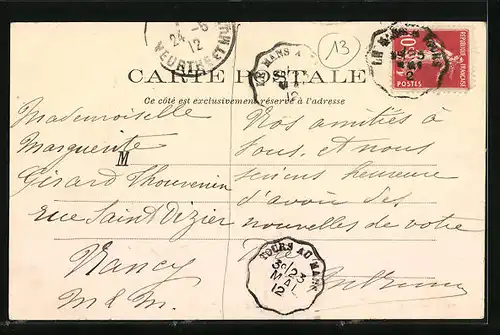 24 - 5
12
MEURTHE ET M
LE MANS A
12
13
LE MANS A TOURS
23
2
10
REPUBLIQUE FRANÇAISE
POSTES
CARTE POSTALE
Ce côté est exclusivement réservé à l'adresse
Mademoiselle
Marguerite
M
Girard Thouvenin
rue Saint Dizier
Nancy
M & M.
Nos amitiés à
tous. Nous
serions heureux
d'avoir des
nouvelles de votre
TOURS AU MANS
3e/23
MAI
12